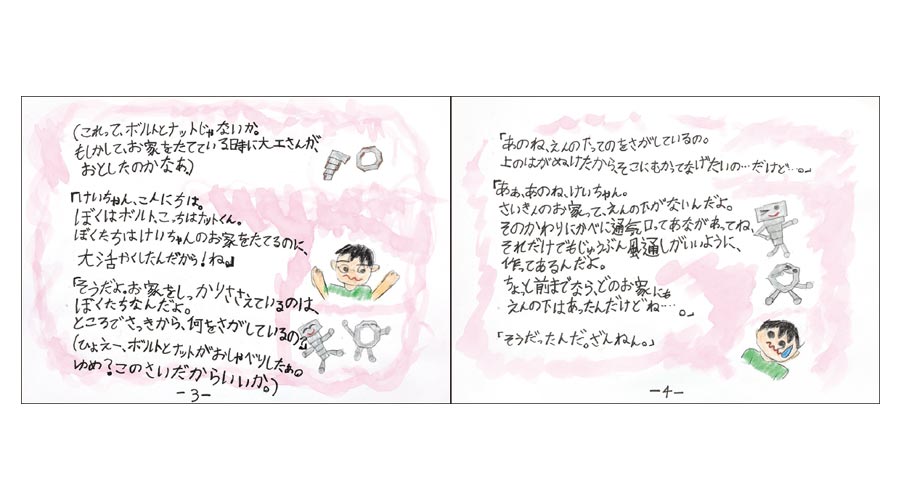 (これって、ボルトとナットじゃないか。
もしかして、お家をたてている時に大工さんが、
おとしたのかなあ)
「けいちゃん、こんにちは。
ぼくはボルト、こっちはナットくん。
ぼくたちはけいちゃんのお家をたてるのに、
大活やくしたんだから!ね。」
「そうだよ。お家をしっかりささえているのは、
ぼくたちなんだよ。
ところでさっきから、何をさがしているの?」
(ひょえー、ボルトとナットがおしゃべりしたぁ。
ゆめ?このさいだからいいか。)
-3-
「あのね、えんの下ってのをさがしているの。
上のはがぬけたから、そこにむかってなげたいの…だけど…。」
「あぁ、あのね、けいちゃん。
さいきんのお家って、えんの下がないんだよ。
そのかわりにかべに通気口ってあながあってね、
それだけでもじゅうぶん風通しがいいように、
作ってあるんだよ。
ちょっと前までなら、どのお家にも
えんの下はあったんだけどね…。」
「そうだったんだ。ざんねん。」
-4-